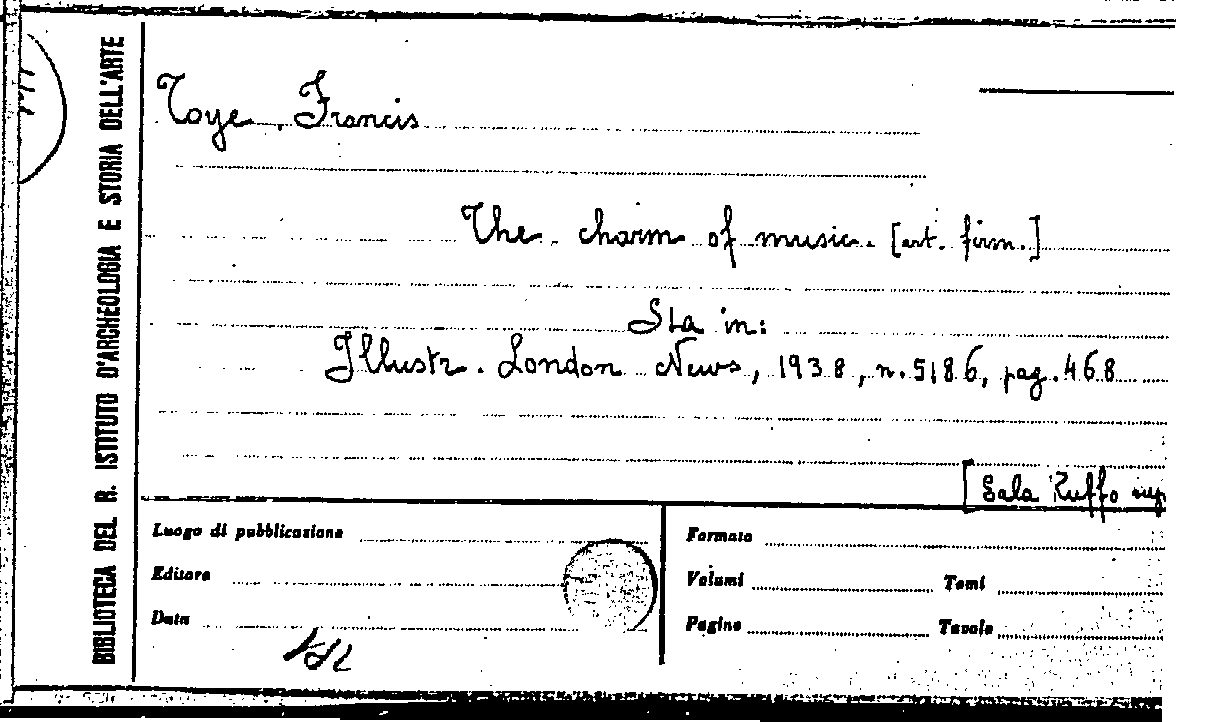 BIBLIOTECA DEL R. ISTITUTO D'ARCHEOLOGIA E STORIA DELL'ARTE
Toye. Francis
The charm of music. [art. firm.]
Sta in:
Illustr. London News, 1938, n. 5186, pag. 468
[Sala Ruffo sup
Luogo di pubblicazione
Editore
Data
Formato
Volumi Tomi
Pagine Tavole